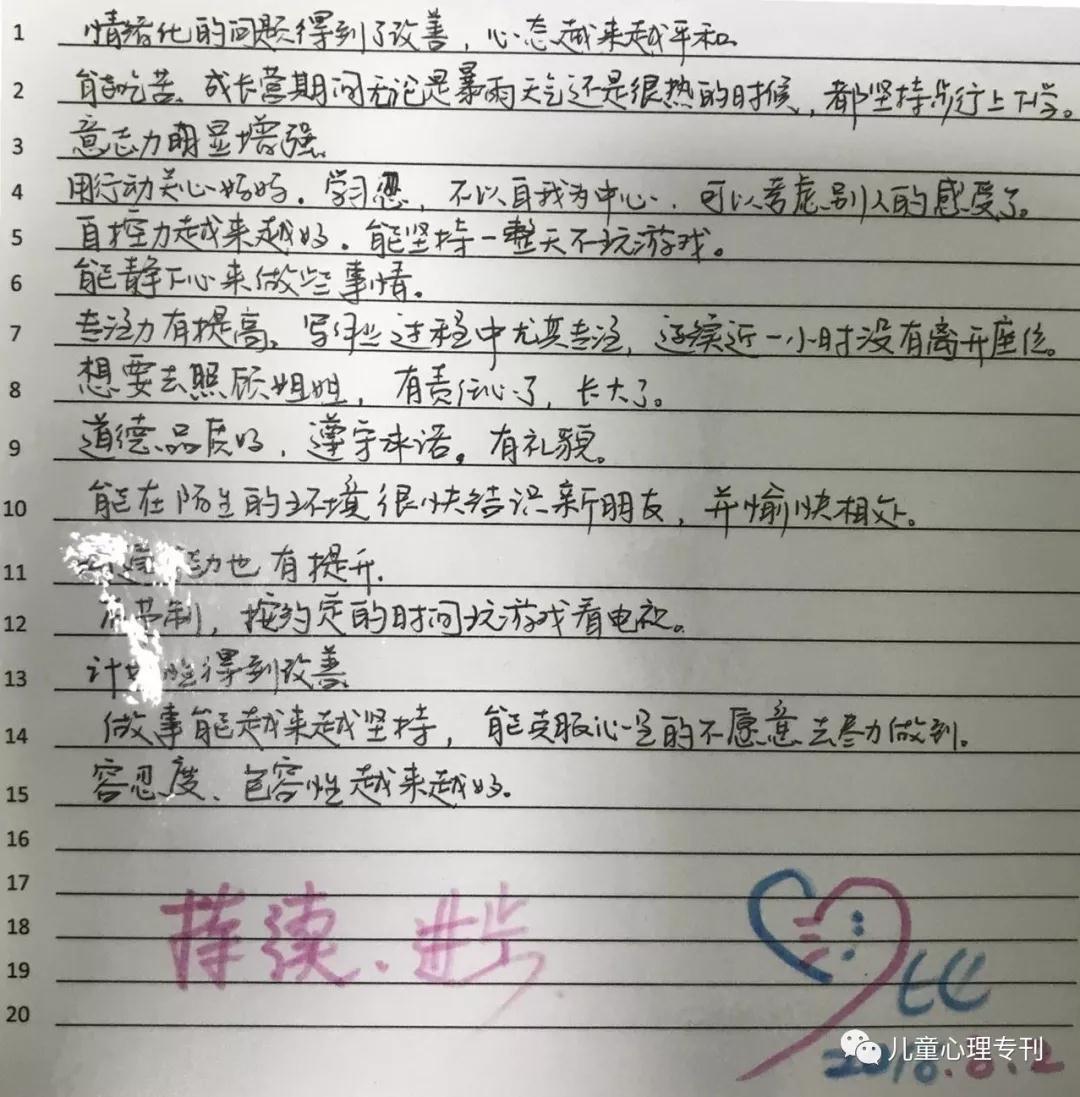 1 情绪化的问题得到了改善，心态越来越平和
2 能吃苦、成长营期间无论是暴雨天气还是很热的时候，都坚持步行上下学。
3 意志力明显增强。
4 用行动关心妈妈。学习忍，不以自我为中心、可以考虑别人的感受了。
5 自控力越来越好。能坚持一整天不玩游戏。
6 能静下心来做些事情。
7 专注力有提高。写作业过程中尤其专注，连续近一小时没有离开座位。
8 想要去照顾姐姐，有责任心了，长大了。
9 道德品质好，遵守承诺。有礼貌。
10 能在陌生的环境很快结识新朋友，并愉快相处。
11 能力也有提升.
12 有节制，按约定的时间玩游戏看电视。
13 计划性得到改善
14 做事能越来越坚持，能克服心里的不愿意去尽力做到。
15 容忍度、包容性越来越好.
16
17
18 持续.进步
19
20
儿童心理专刊
2018.8.2